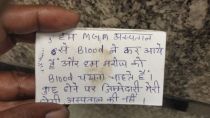 हम MGM अस्पताल
से Blood ले कर आये
हैं और हम मरीज को
Blood चढाना चाहते हैं।
कुछ होने पर जिम्मेदारी मेरी
होगी अस्पताल की नहीं।